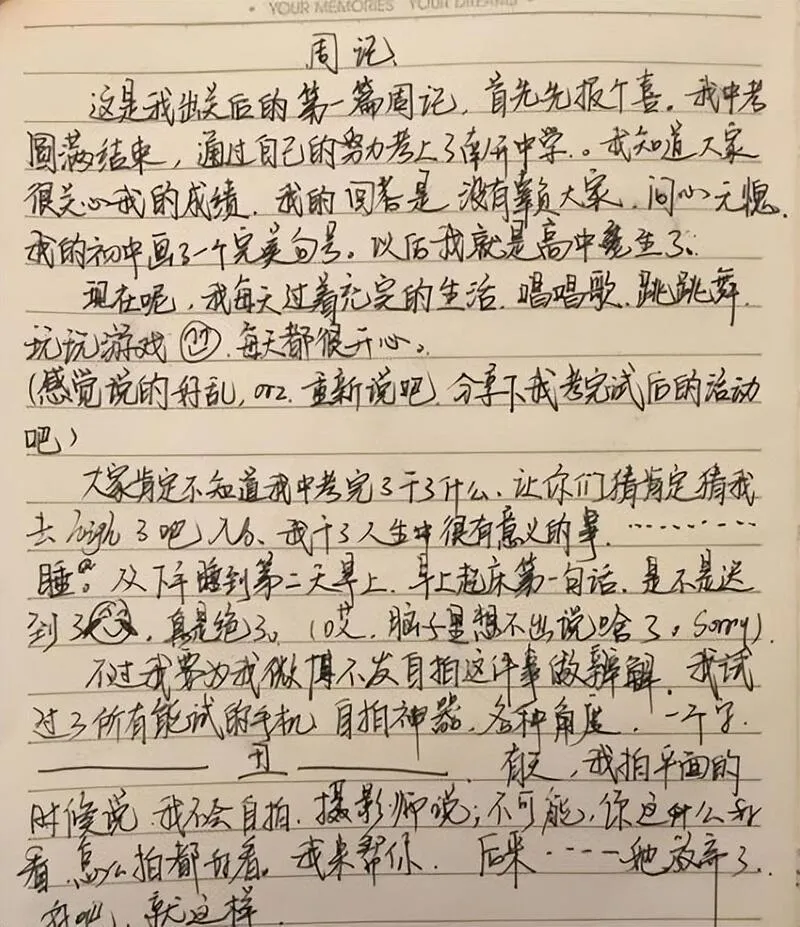 YOUR MEMORIES YOUR DREAMS
周记
这是我出关后的第一篇周记，首先先报个喜。我中考
圆满结束，通过自己的努力考上了南开中学。我知道大家
很关心我的成绩，我的回答是 没有辜负大家，问心无愧。
我的初中画了一个完美句号。以后我就是高中生了。
现在呢，我每天过着充实的生活，唱唱歌、跳跳舞，
玩玩游戏，每天都很开心。
(感觉说的好乱，orz. 重新说吧，分享下我考完试后的活动
吧)
大家肯定不知道我中考完了干了什么，让你们猜肯定猜我
去high了吧 No、我干了人生中很有意义的事，………
睡。从下午睡到第二天早上，早上起床第一句话，是不是迟
到了，真是绝了。(哎，脑子里想不出说啥了。Sorry).
不过我要为我微博不发自拍这件事做辩解，我试
过了所有能试的手机、自拍神器、各种角度，一个字，
—— 丑 ——. 有天，我拍平面的
时候说 我不会自拍，摄影师说；不可能，你这什么好
看，怎么拍都好看。我来帮你. 后来····她放弃了.
好吧，就这样.